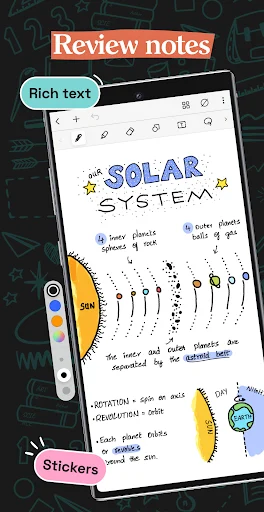 Review notes
Rich text
OUR
SOLAR
SYSTEM
4 inner planets
spheres of rock
4 Outer planets
balls of gas
SUN
The inner and outer planets are
separated by the astroid belt
•ROTATION = spin on axis
•REVOLUTION = orbit
• Each planet orbits
or revolves
around the sun.
DAY
NIGHT
SUN
EARTH
Stickers